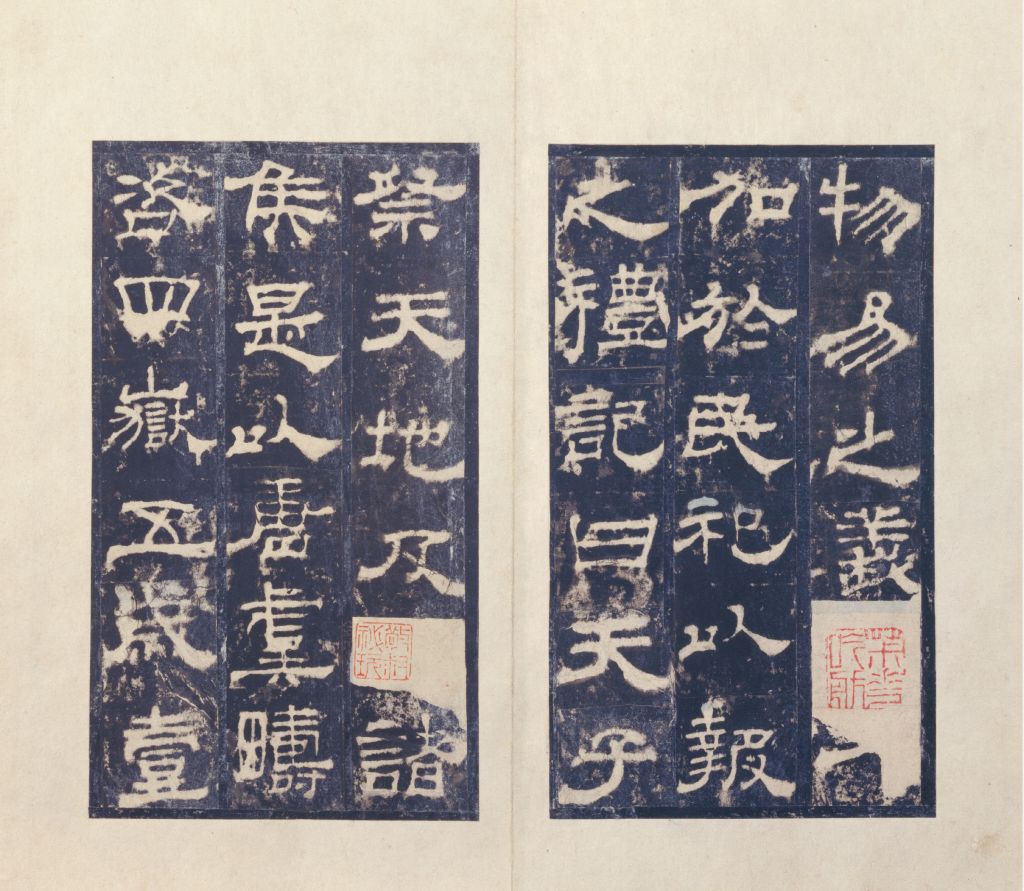 物易之義
加於民祀以報
之禮記曰天子
祭天地及
諸
侯是以唐虞疇
咨四嶽五歲壹